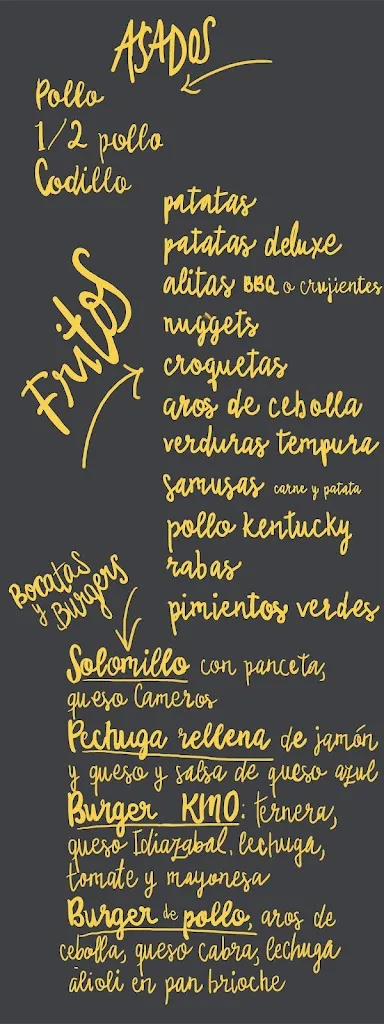 ASADOS
Pollo
1/2 pollo
Codillo
Fritos
patatas
patatas deluxe
alitas BBQ o crujientes
nuggets
croquetas
aros de cebolla
verduras tempura
samusas carne y patata
pollo kentucky
rabas
pimientos verdes
Bocatas
y Burgers
Solomillo con panceta,
queso Cameros
Pechuga rellena de jamón
y queso y salsa de queso azul
Burger KM0: ternera,
queso Idiazabal, lechuga,
tomate y mayonesa
Burger de pollo, aros de
cebolla, queso cabra, lechuga
alioli en pan brioche